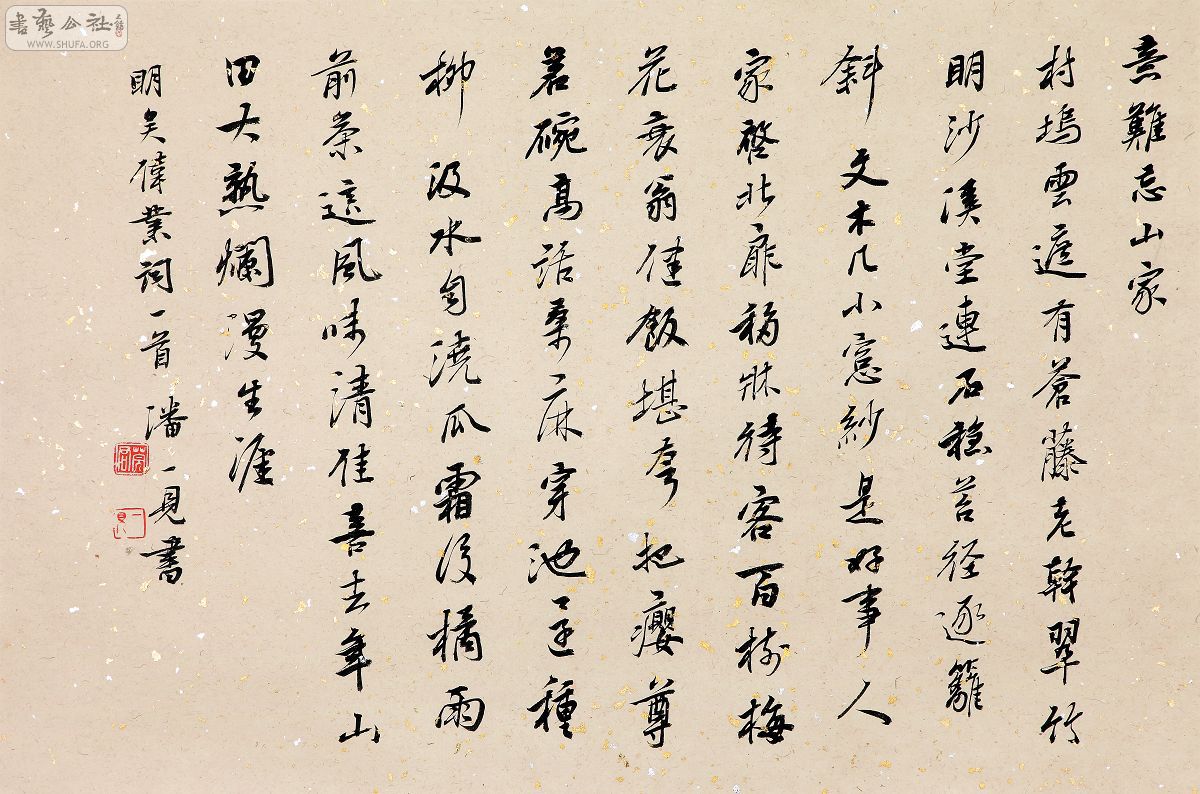 意難忘山家
村塢雲遮有蒼藤老幹翠竹
明沙溪堂連石穩苔徑逐籬
斜 文木几小窓紗是好事人
家啓北扉移牀待客百樹梅
花衰翁健飯堪夸把癭尊
茗碗高話桑麻穿池還種
柳汲水自澆瓜霜後橘雨
前茶這風味清佳喜去年山
田大熟爛漫生涯
明吳偉業詞一首 潘一見書
書藝公社
WWW.SHUFA.ORG